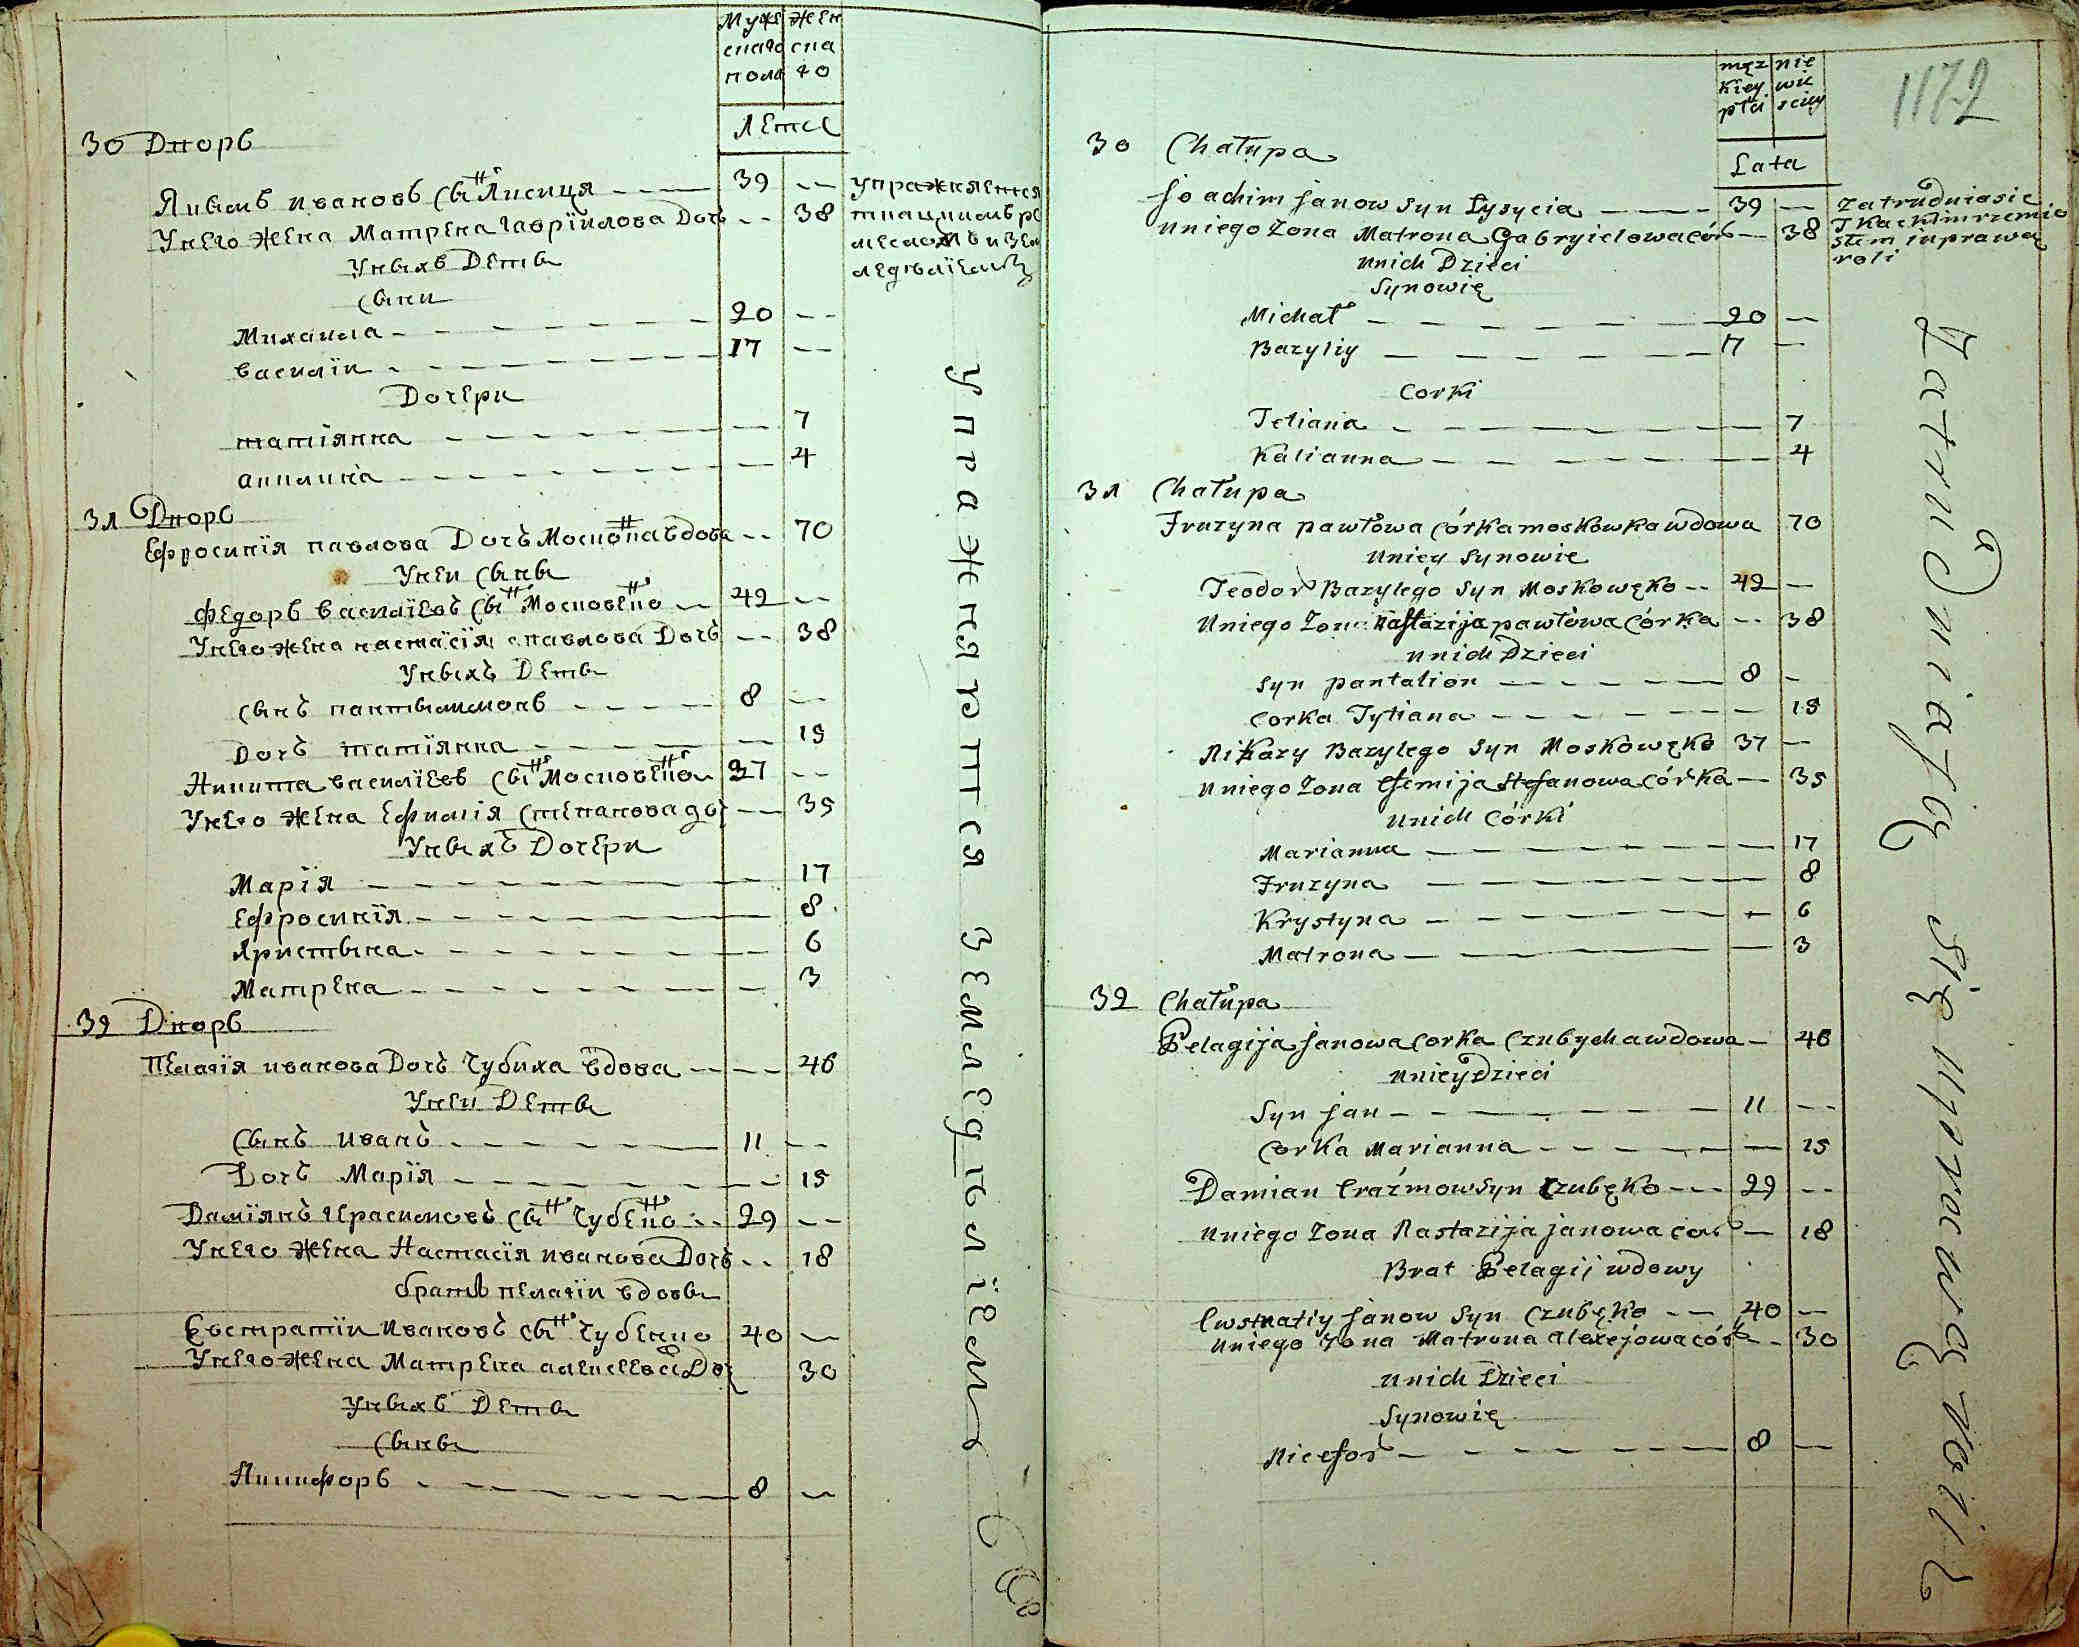 Муже жен
скаго ска
пола го
Лета
30 Дворъ
Якимъ Ивановъ сынъ Лисиця 39 --
У него жена Матрена Гаврїилова дочь -- 38
У нихъ дети
сыны
Михаила 20 --
Василїи 17 --
Дочери
татїянна 7
аннинка 4
31 Дворъ
Ефросинїя павлова Дочь Московка вдова -- 70
У неи сыны
Федоръ василїевъ сынъ Московенко 42 --
У него жена настасїя павлова Дочь -- 38
У ныхъ Дети
сынъ пантылимонъ 8 --
Дочь татїянна 15
Никита василїевъ сынъ Московенко 37 --
У него жена Ефимїя степанова дочь -- 35
У ныхъ Дочери
Марїя 17
Ефросинїя 8
Христына 6
Матрена 3
32 Дворъ
Пелагїя иванова Дочь Чубиха вдова -- 46
У неи Дети
сынъ иванъ 11 --
Дочь Марїя 15
Дамїянъ Ирасимовъ сынъ Чубенко 29 --
У него жена Настасїя иванова Дочь -- 18
братъ пелагїи вдовы
Евстратїи Ивановъ сынъ Чубенко 40 --
У него жена Матрена алексеева Доч 30
У ныхъ Дети
сыны
Никифоръ 8 --
упражняется
ткацкимъ ре
месломъ и зем
леделїемъ
упражняютстя земледелїемъ
męz nie
kiey wie
płci sciey
Lata
1172
30 Chałupa
Joachim Janow Syn Łysycia 39 --
u niego Żona Matrona Gabryielowa córk -- 38
u nich Dzieci
Synowię
Michał 20 --
Bazyliy 17 --
Corki
Tetiana 7
Kalianna 4
31 Chałupa
Fruzyna pawłowa córka moskowka wdowa 70
u niey Synowie
Teodor Bazylego Syn Moskowęko 42 --
u niego Żona Nastazija pawłowa Córka -- 38
u nich Dzieci
Syn pantalion 8 -
Corka Tytiana 15
Nikazy Bazylego Syn Moskowęko 37 --
u niego Żona Efemija Stefanowa Córka -- 35
u nich Córki
Marianna 17
Fruzyna 8
Krystyna 6
Matrona 3
32 Chałupa
Pelagija Janowa Corka Czubycha wdowa -- 46
u niey Dzieci
Syn Jan 11 --
Corka Marianna 15
Damian Erazmow Syn Czubęko 29 --
u niego Żona Nastazija Janowa cor -- 18
Brat Pelagij wdowy
Ewstratiy Janow Syn Czubęko 40 --
u niego Żona Matrona Alexejowa córk -- 30
u nich Dzieci
Synowię
Nicefor 8 --
Zatrudnia sie
Tkackim rzemio
słem i uprawą
roli
Zatrudniają się uprawą roili